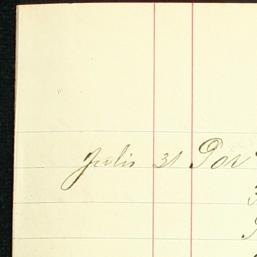 Julii 31 Por